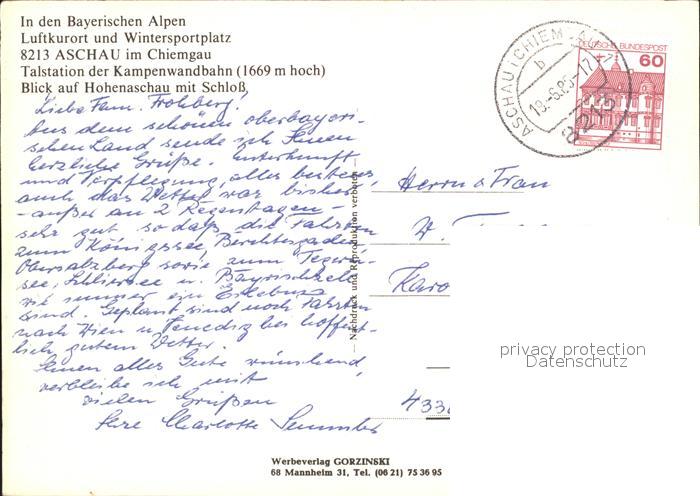 In den Bayerischen Alpen
Luftkurort und Wintersportplatz
8213 ASCHAU im Chiemgau
Talstation der Kampenwandbahn (1669 m hoch)
Blick auf Hohenaschau mit Schloß
Liebe Fam. Frohberg!
Aus dem schönen oberbayeri-
schen Land sende ich Ihnen
herzliche Grüße. Unterkunft
und Verpflegung, alles bestens,
auch das Wetter war bisher
- außer an 2 Regentagen -
sehr gut so daß die Fahrten
zum Königssee, Berchtesgaden,
Obersalzberg sowie zum Tegern-
see, Schliersee u. Bayrischzell
wie immer ein Erlebnis
sind. Geplant sind noch Fahrten
nach Wien u. Venedig bei hoffent-
lich gutem Wetter.
Ihnen alles Gute wünschend,
verbleibe ich mit
vielen Grüßen
Ihre Charlotte
ASCHAU i CHIEMGAU
b
18.-6.85-17
8213
DEUTSCHE BUNDESPOST
60
Herrn u. Frau
W.
Karo
433
Nachdruck und Reproduktion verboten
privacy protection
Datenschutz
Werbeverlag GORZINSKI
68 Mannheim 31, Tel. (06 21) 75 36 95